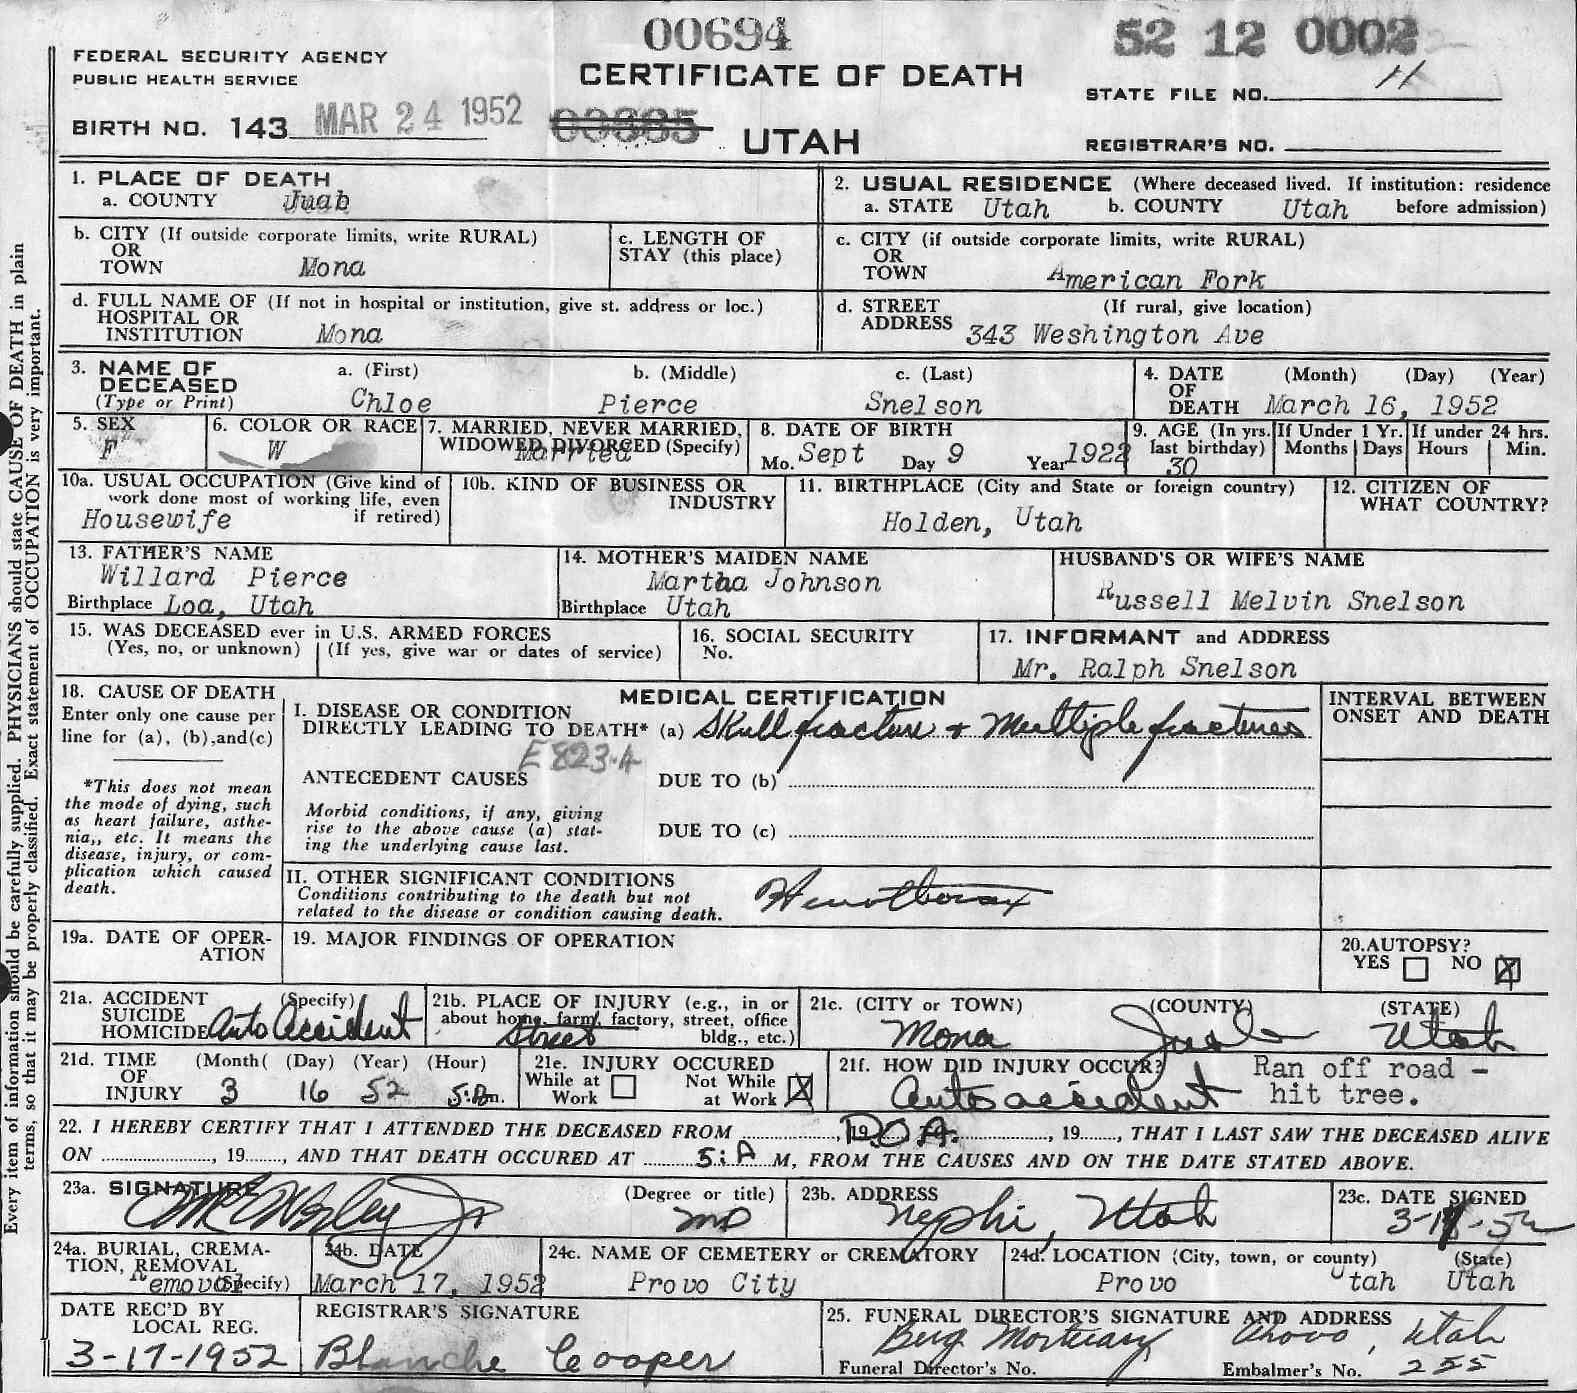 00694
52 12 0002
FEDERAL SECURITY AGENCY
PUBLIC HEALTH SERVICE
CERTIFICATE OF DEATH
STATE FILE NO.
BIRTH NO. 143 MAR 24 1952
UTAH
REGISTRAR'S NO.
1. PLACE OF DEATH
a. COUNTY Juab
2. USUAL RESIDENCE (Where deceased lived. If institution: residence
a. STATE Utah b. COUNTY Utah before admission)
b. CITY (If outside corporate limits, write RURAL)
OR
TOWN Mona
c. LENGTH OF
STAY (this place)
c. CITY (if outside corporate limits, write RURAL)
OR
TOWN American Fork
d. FULL NAME OF (If not in hospital or institution, give st. address or loc.)
HOSPITAL OR
INSTITUTION Mona
d. STREET (If rural, give location)
ADDRESS 343 Weshington Ave
3. NAME OF
DECEASED
(Type or Print)
a. (First) b. (Middle) c. (Last)
Chloe Pierce Snelson
4. DATE (Month) (Day) (Year)
OF
DEATH March 16, 1952
5. SEX
F
6. COLOR OR RACE
W
7. MARRIED, NEVER MARRIED,
WIDOWED DIVORCED (Specify)
Married
8. DATE OF BIRTH
Mo. Sept Day 9 Year 1922
9. AGE (In yrs.
last birthday)
30
If Under 1 Yr.
Months Days
If under 24 hrs.
Hours Min.
10a. USUAL OCCUPATION (Give kind of
work done most of working life, even
if retired)
Housewife
10b. KIND OF BUSINESS OR
INDUSTRY
11. BIRTHPLACE (City and State or foreign country)
Holden, Utah
12. CITIZEN OF
WHAT COUNTRY?
13. FATHER'S NAME
Willard Pierce
Birthplace Loa, Utah
14. MOTHER'S MAIDEN NAME
Martha Johnson
Birthplace Utah
HUSBAND'S OR WIFE'S NAME
Russell Melvin Snelson
15. WAS DECEASED ever in U.S. ARMED FORCES
(Yes, no, or unknown) (If yes, give war or dates of service)
16. SOCIAL SECURITY
No.
17. INFORMANT and ADDRESS
Mr. Ralph Snelson
18. CAUSE OF DEATH
Enter only one cause per
line for (a), (b),and(c)
*This does not mean
the mode of dying, such
as heart failure, asthe-
nia,, etc. It means the
disease, injury, or com-
plication which caused
death.
MEDICAL CERTIFICATION
I. DISEASE OR CONDITION
DIRECTLY LEADING TO DEATH* (a) Skull fracture + Multiple fractures
E823.4
ANTECEDENT CAUSES DUE TO (b)
Morbid conditions, if any, giving
rise to the above cause (a) stat-
ing the underlying cause last.
DUE TO (c)
INTERVAL BETWEEN
ONSET AND DEATH
II. OTHER SIGNIFICANT CONDITIONS
Conditions contributing to the death but not
related to the disease or condition causing death.
Hemothorax
19a. DATE OF OPER-
ATION
19. MAJOR FINDINGS OF OPERATION
20.AUTOPSY?
YES NO X
21a. ACCIDENT (Specify)
SUICIDE
HOMICIDE Auto Accident
21b. PLACE OF INJURY (e.g., in or
about home, farm, factory, street, office
bldg., etc.)
Street
21c. (CITY or TOWN) (COUNTY) (STATE)
Mona Juab Utah
21d. TIME (Month) (Day) (Year) (Hour)
OF
INJURY 3 16 52 5:A m.
21e. INJURY OCCURED
While at Work Not While at Work X
21f. HOW DID INJURY OCCUR?
Auto accident
Ran off road -
hit tree.
22. I HEREBY CERTIFY THAT I ATTENDED THE DECEASED FROM , 19 D.O.A. , 19 , THAT I LAST SAW THE DECEASED ALIVE
ON , 19 , AND THAT DEATH OCCURED AT 5:A M, FROM THE CAUSES AND ON THE DATE STATED ABOVE.
23a. SIGNATURE (Degree or title)
MD
23b. ADDRESS
Nephi, Utah
23c. DATE SIGNED
24a. BURIAL, CREMA-
TION, REMOVAL
(Specify) Removal
24b. DATE
March 17, 1952
24c. NAME OF CEMETERY or CREMATORY
Provo City
24d. LOCATION (City, town, or county) (State)
Provo Utah Utah
DATE REC'D BY
LOCAL REG.
3-17-1952
REGISTRAR'S SIGNATURE
Blanche Cooper
25. FUNERAL DIRECTOR'S SIGNATURE AND ADDRESS
Berg Mortuary Provo, Utah
Funeral Director's No. Embalmer's No. 255
Every item of information should be carefully supplied. PHYSICIANS should state CAUSE OF DEATH in plain
terms, so that it may be properly classified. Exact statement of OCCUPATION is very important.